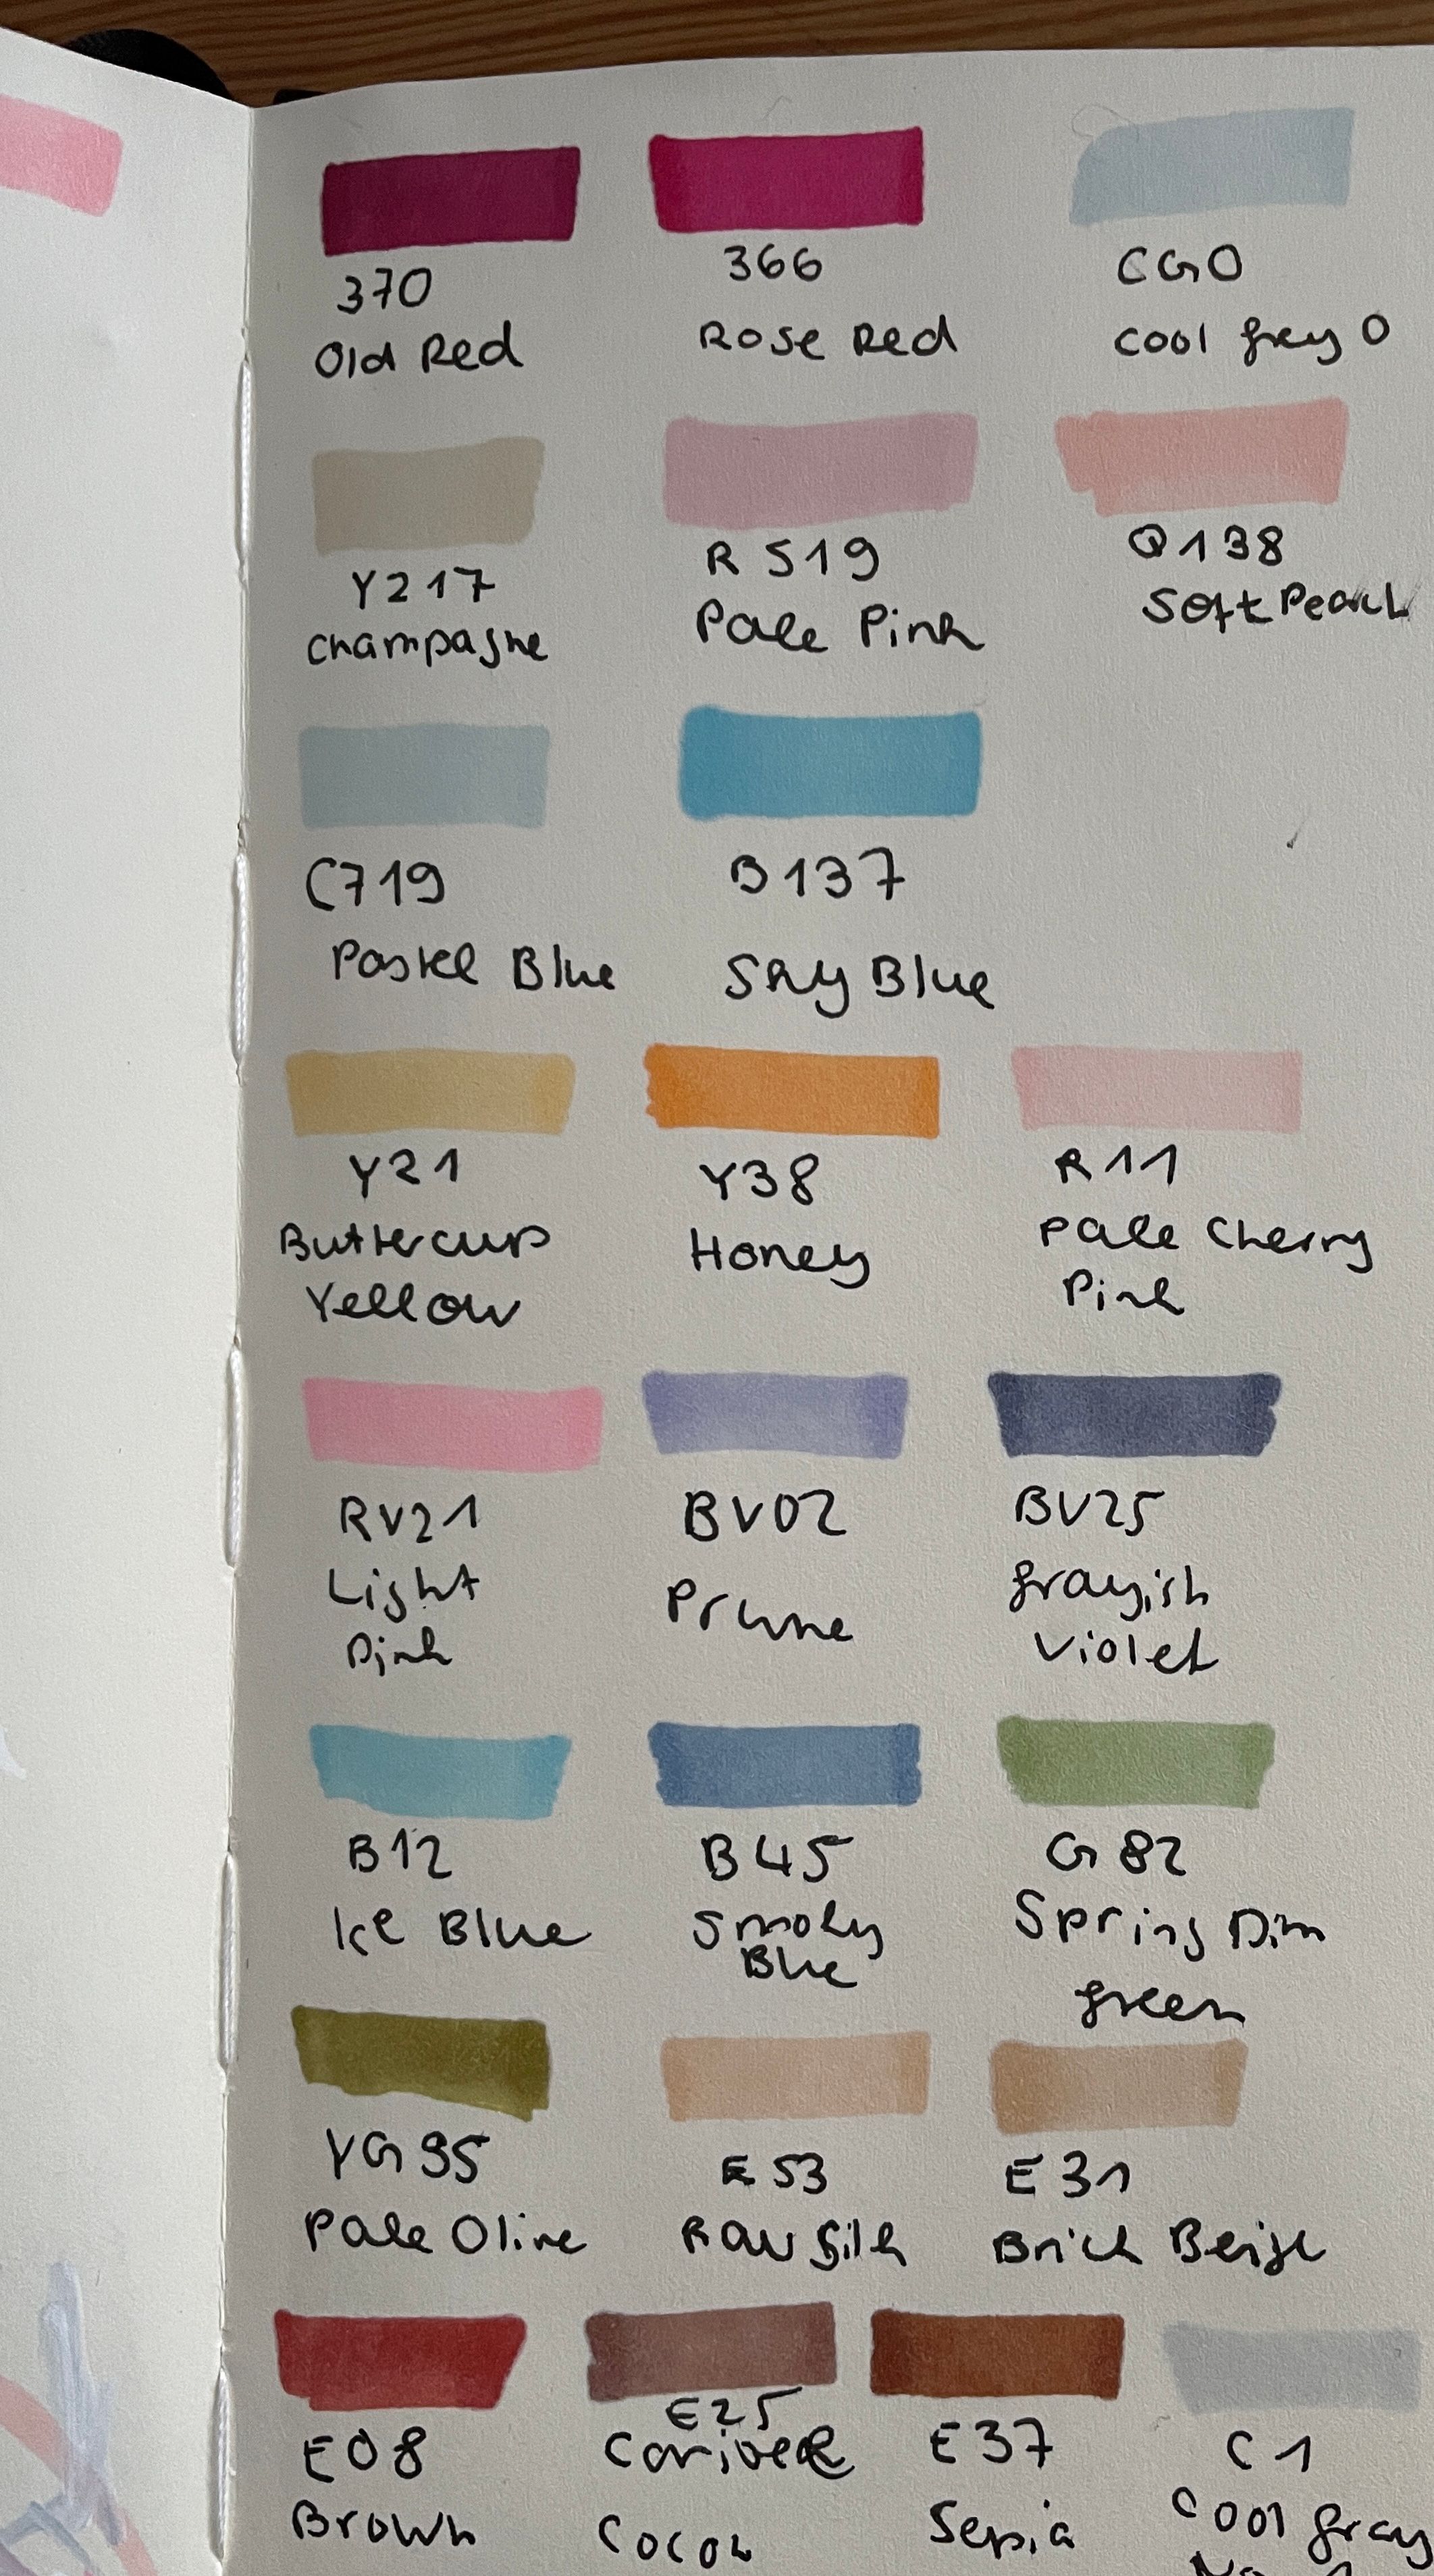 370
Old Red
366
Rose Red
CG0
Cool Grey 0
Y217
Champagne
R519
Pale Pink
O138
Soft Peach
C719
Pastel Blue
B137
Sky Blue
Y21
Buttercup
Yellow
Y38
Honey
R11
Pale Cherry
Pink
RV21
Light
Pink
BV02
Prune
BV25
Grayish
Violet
B12
Ice Blue
B45
Smoky
Blue
G82
Spring Dim
Green
YG95
Pale Olive
E53
Raw Silk
E31
Brick Beige
E08
Brown
E25
Caribe
Cocoa
E37
Sepia
C1
Cool Gray